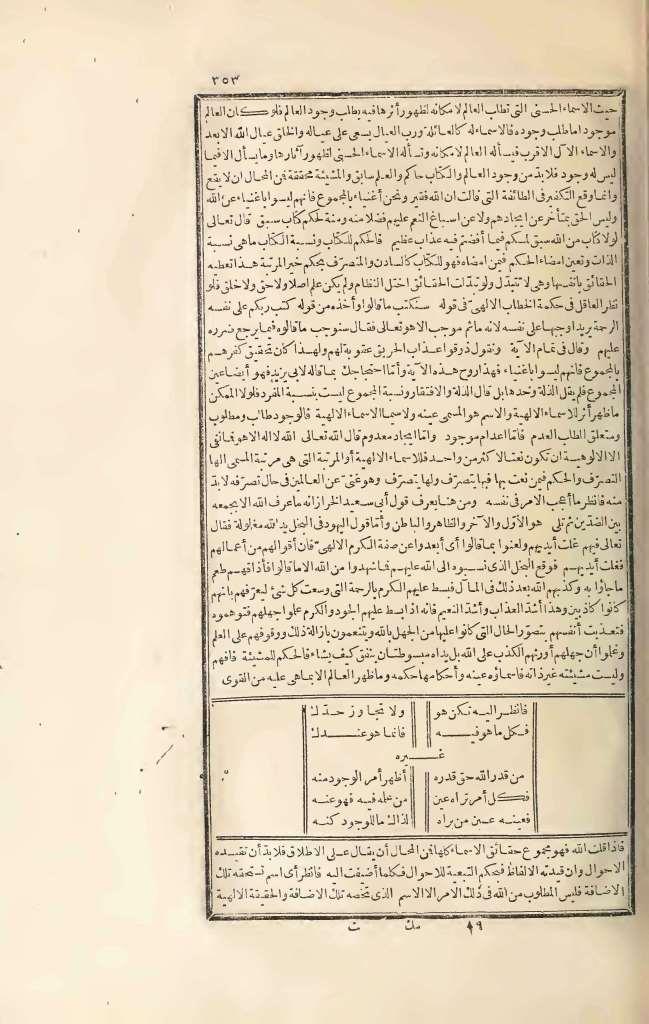 ٣٥٣
حيث الاسماء الحسنى التى تطلب العالم لامكانه لظهور أثرها فيه يطلب وجود العالم فلو كان العالم
موجودا ما طلب وجوده فالاسماء له كالعائلة ورب العيال يسعى على عياله والخلق عيال الله الابعد
والاسماء الآل الاقرب فيسأله العالم لامكانه وتسأله الاسماء الحسنى لظهور آثارها وما يسأل الا فيما
ليس له وجود فلا بد من وجود العالم والكتاب حاكم والعلم سابق والمشيئة محققة فمن المحال ان لا يقع
وانما وقع التكفير فى الطائفة التى قالت ان الله فقير ونحن أغنياء بالمجموع فانهم ليسوا باغنياء عن الله
وليس الحق بمتأخر عن ايجادهم ولا عن اسباغ النعم عليهم فضلا منه ومنة لحكم كتاب سبق قال تعالى
لولا كتاب من الله سبق لمسكم فيما أفضتم فيه عذاب عظيم فالحكم للكتاب ونسبة الكتاب ما هى نسبة
الذات وتعين امضاء الحكم فيمن امضاه فهو للكتاب كالسادن والمتصرف بحكم خبر المرتبة هذا تعطيه
الحقائق بانفسها وهى لا تتبدل ولو تبدلت الحقائق اختل النظام ولم يكن علم اصلا ولا حق ولا خلق فلو
نظر العاقل فى حكمة الخطاب الالهى فى قوله سنكتب ما قالوا وأخذه من قوله كتب ربكم على نفسه
الرحمة يريد اوجبها على نفسه لانه ما ثم موجب الا هو تعالى فقال سنوجب ما قالوه فيما يرجع ضرره
عليهم وقال فى تمام الآية ونقول ذوقوا عذاب الحريق عقوبة لهم ولهذا كان تحقيق كفرهم
بالمجموع فانهم ليسوا باغنياء فهذا روح هذه الآية وأما احتجاجك بما قاله لابى يزيد فهو أيضا عين
المجموع فلم يقل الذلة وحدها بل قال الذلة والافتقار ونسبة المجموع ليست بنسبة المفرد فلولا الممكن
ما ظهر أثر للاسماء الالهية والاسم هو المسمى عينه ولا سيما الاسماء الالهية فالوجود طالب ومطلوب
ومتعلق الطلب العدم فاما اعدام موجود واما ايجاد معدوم قال الله تعالى الله لا اله الا هو فما نفى
الا الالوهية ان تكون نعتا لاكثر من واحد فللاسماء الالهية أو المرتبة التى هى مرتبة المسمى الها
التصرف والحكم فيمن نعت بها فبها يتصرف ولها يتصرف وهو غنى عن العالمين فى حال تصرفه لا بد
منه فانظر ما أعجب الامر فى نفسه ومن هنا يعرف قول أبى سعيد الخراز انه ما عرف الله الا بجمعه
بين الضدين ثم تلى هو الاول والآخر والظاهر والباطن وأما قول اليهود فى البخل يد الله مغلولة فقال
تعالى فيهم غلت أيديهم ولعنوا بما قالوا أى أبعدوا عن صفة الكرم الالهى فان أقوالهم من أعمالهم
فغلت أيديهم فوقع البخل الذى نسبوه الى الله عليهم فما شهدوا من الله الا ما قالوا فأذاقهم طعم
ما جاؤا به وكذبهم الله بعد ذلك فى المآل فبسط عليهم الكرم بالرحمة التى وسعت كل شئ ليعرفهم بانهم
كانوا كاذبين وهذا أشد العذاب وأشد النعيم فانه اذا بسط عليهم الجود والكرم علموا جهلهم فتوهموه
فتعذبت أنفسهم بتصور الحال التى كانوا عليها من الجهل بالله ويتنعمون بازالة ذلك ووقوفهم على العلم
وعلموا أن جهلهم أورثهم الكذب على الله بل يداه مبسوطتان ينفق كيف يشاء فالحكم للمشيئة فافهم
وليست مشيئته غير ذاته فاسماؤه عينه وأحكامها حكمه وما ظهر العالم الا بما هى عليه من القوى
فانظر اليه تكن هو ولا تجاوز حدك
فكل ما هو فيه فانما هو عندك
غيره
من قدر الله حق قدره أظهر أمر الوجود منه
فكل أمر تراه عين من مجمله فيه فهو عنه
فعينه عين من يراه لذاك ما للوجود كنه
فاذا قلت الله فهو مجموع حقائق الاسماء كلها فمن المحال أن يقال على الاطلاق فلا بد أن تقيده
الاحوال وان قيدته الالفاظ فبحكم التبعية للاحوال فكلما أضيفت اليه فانظر أى اسم تستحقه تلك
الاضافة فليس المطلوب من الله فى ذلك الامر الا الاسم الذى تخصه تلك الاضافة والحقيقة الالهية
٨٩ مك ت